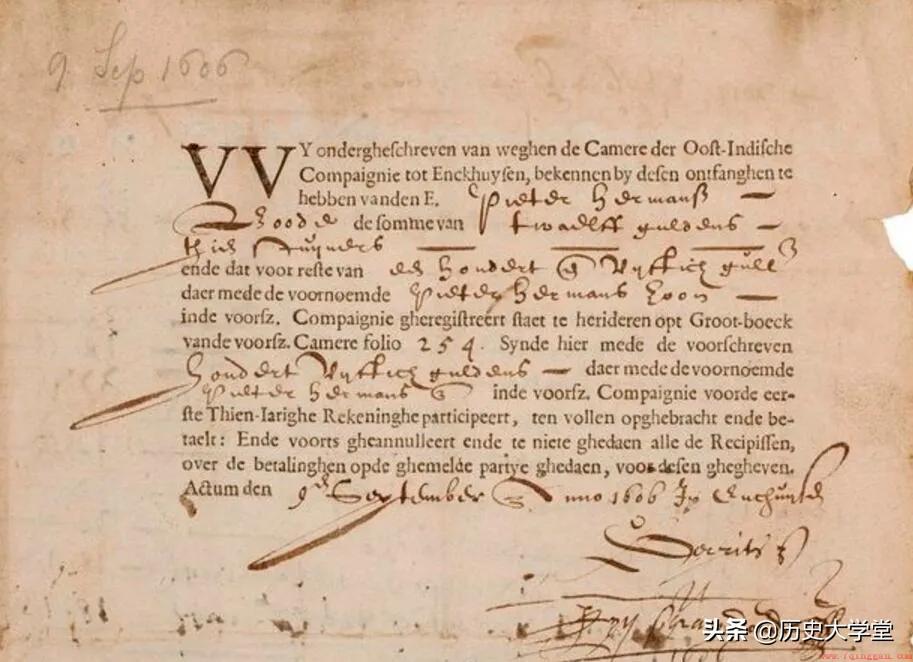 9 Sep 1606
VVY ondergheschreven van weghen de Camere der Oost-Indische
Compaignie tot Enckhuysen, bekennen by desen ontfanghen te
hebben vanden E. Pieter Hermansz
de somme van twaelff guldens
thien stuyvers
ende dat voor reste van een hondert vyftich gull
daer mede de voornoemde Pieter Hermans
inde voorsz. Compaignie gheregistreert staet te herideren opt Groot-boeck
vande voorsz. Camere folio 254. Synde hier mede de voorschreven
hondert vyftich guldens daer mede de voornoemde
Pieter Hermans inde voorsz. Compaignie voorde eer-
ste Thien-Iarighe Rekeninghe participeert, ten vollen opghebracht ende be-
taelt: Ende voorts gheannulleert ende te niete ghedaen alle de Recipissen,
over de betalinghen opde ghemelde partye ghedaen, voor desen ghegheven.
Actum den 9 September Anno 1606 In Enchuysen
头条 @历史大学堂